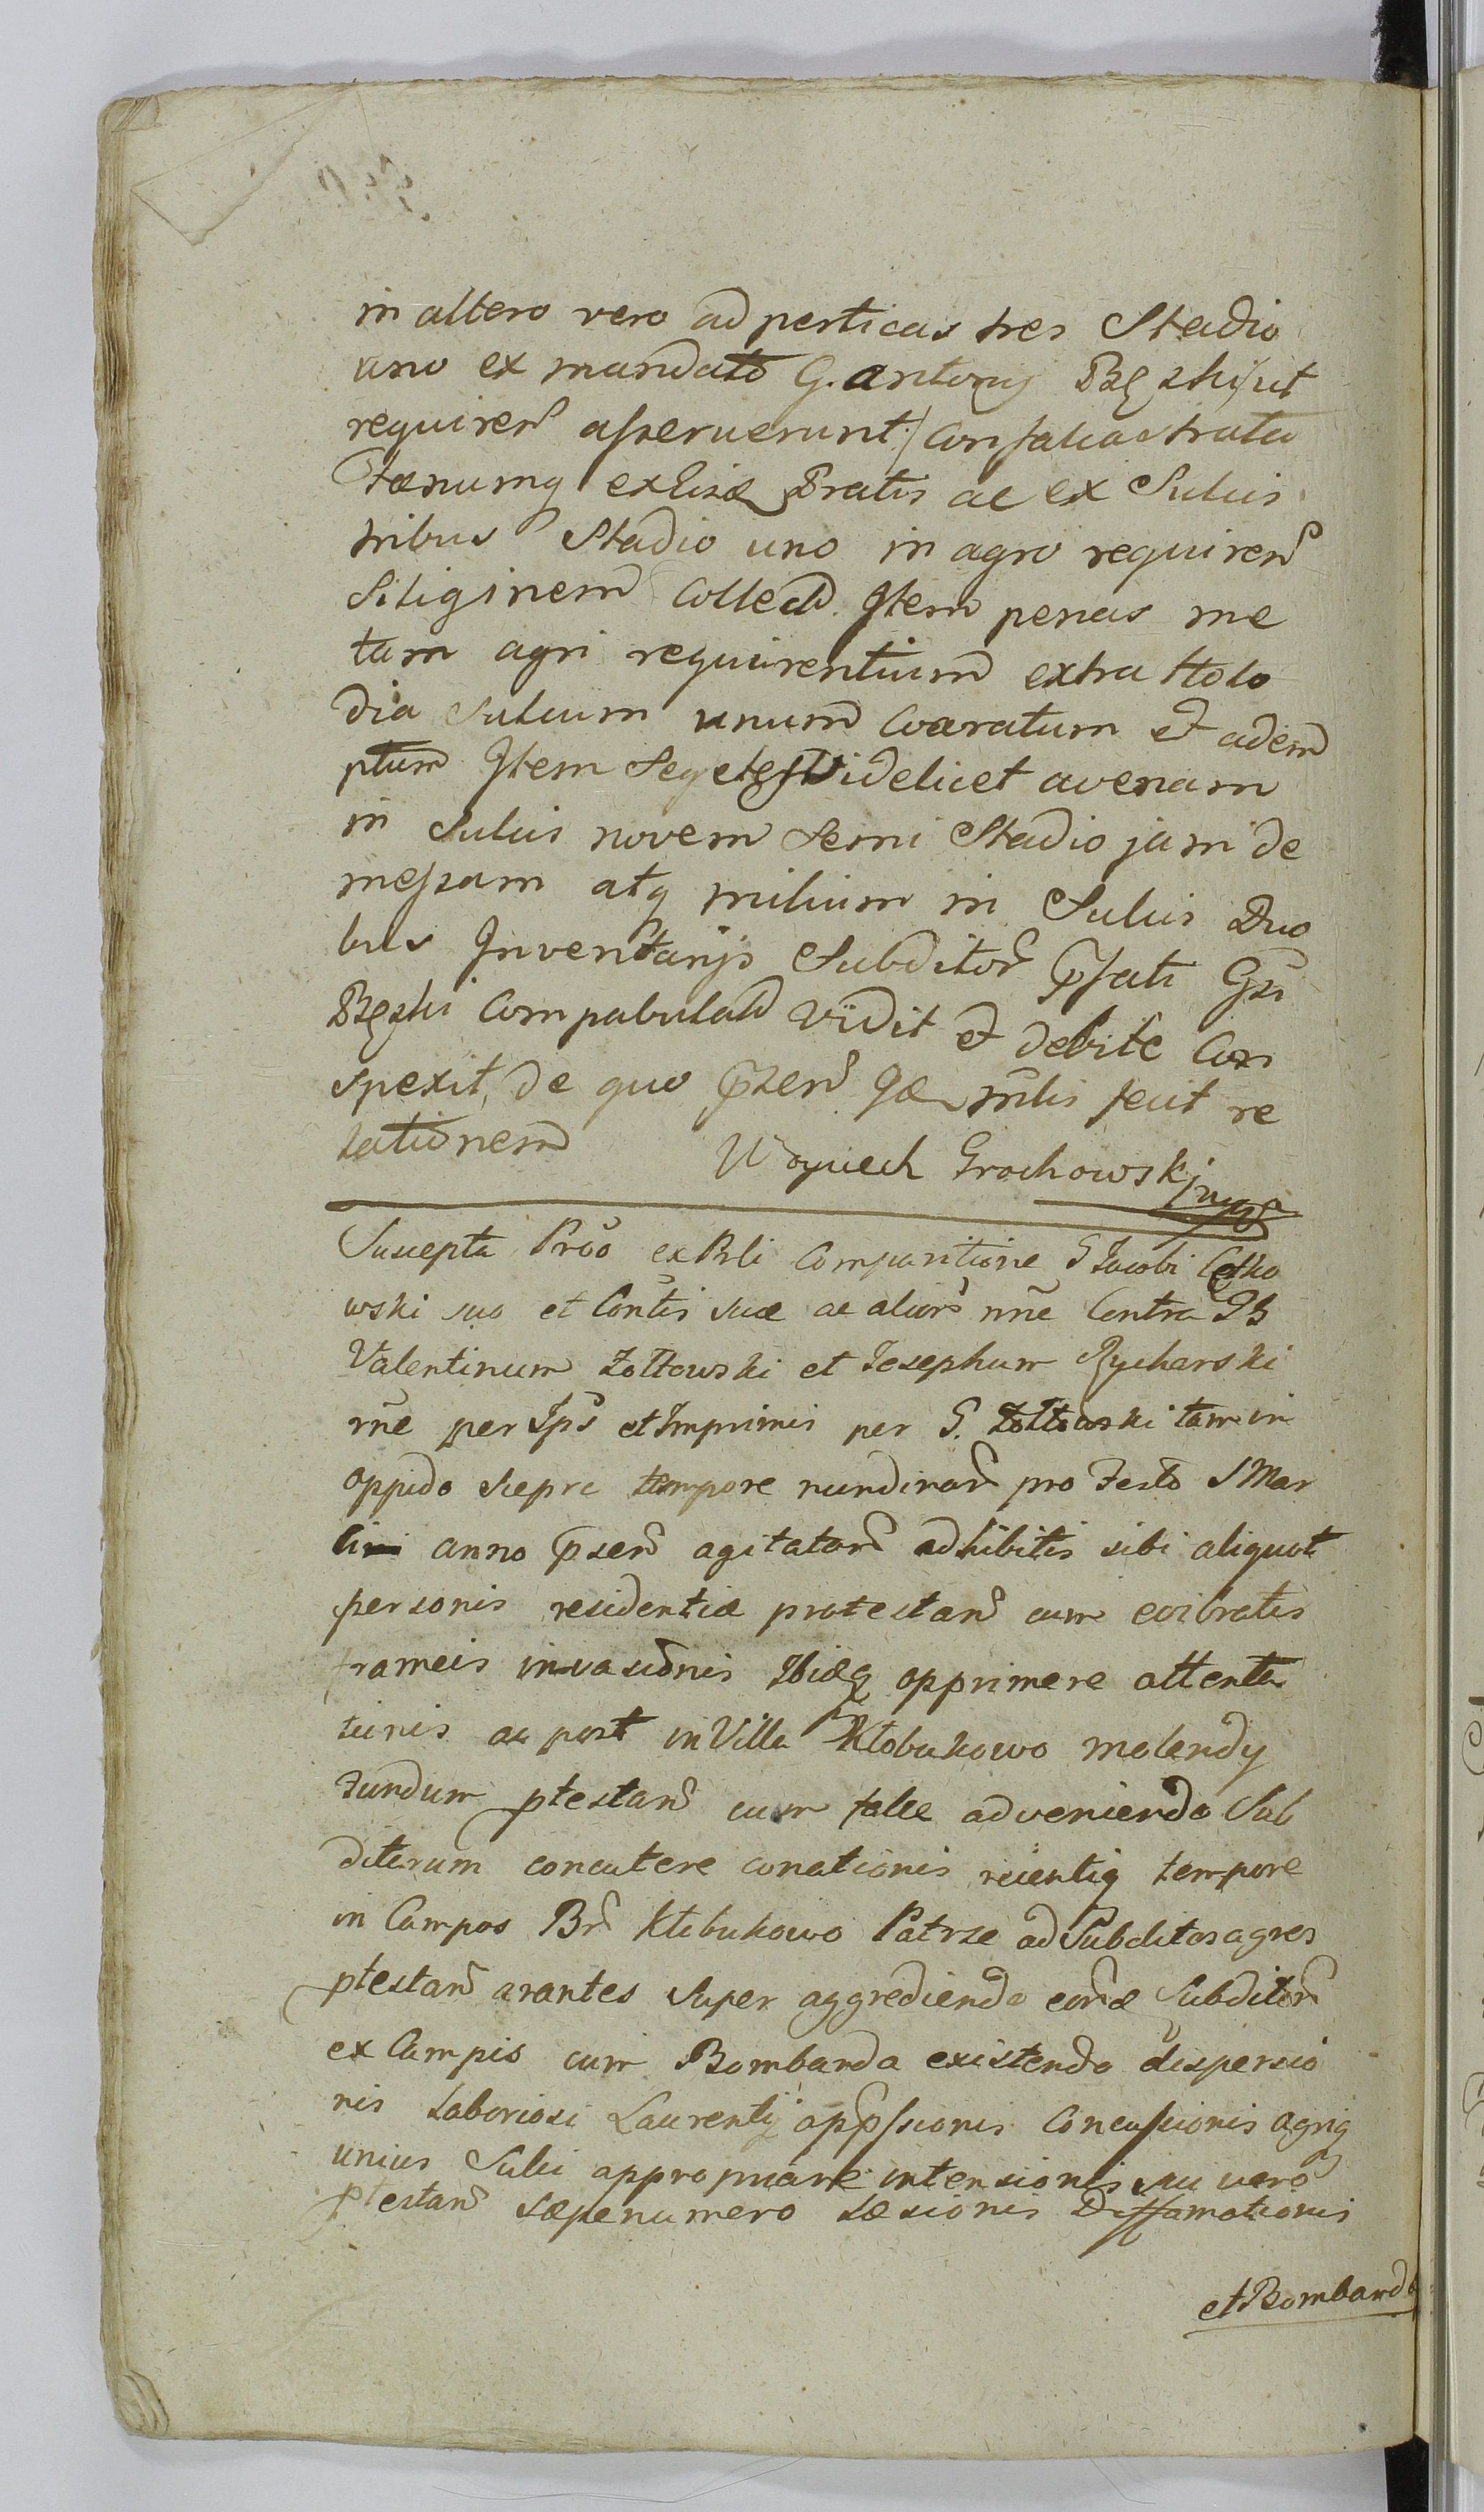 in altero vero ad perticas tres Stadio
uno ex mandato G. Antonij Bzęzki /ut
requiren̄ asseruerunt:/ confalcastrata
Fænumq exlisæ Pratis ac ex Sulcis
tribus Stadio uno in agro requiren̄
Siliginem Collectā. Item penes me
tam agri requirentium extra Holo
dia Sulcum unum Coaratum et adem
ptum Item Segetes Videlicet avenam
in Sulcis novem Semi Stadio jam de
messam atq milium in Sulcis Duo
bus Inventarijs Subditor̄ p̄fati Gsi
Bzęzki Compabulatā vidit et debite Con
spexit, de quo p̄sen̄ Jæ mlis fecit re
lationem Woyciech Grochowski mp
Suscepta Prōō ex Rli Comparitione G Jacobi Cetko
wski suo et Contis suæ ac alior̄ nn̄e Contra GG
Valentinum Zołtowski et Josephum Rycharski
rn̄e per Ips̄ et Imprimis per G. Zołtowski tam in
oppido Sieprc tempore nundinar̄ pro Festo S Mar
tini anno p̄sen̄ agitatar̄ adhibitis sibi aliquot
personis residentiæ protestan̄ cum evibratis
frameis invasionis Ibidq opprimere attenta
tionis ac post in Villa Kłobukowo molendy
Fundum ptestan̄ cum falce adveniendo Sub
ditorum concutere conationis recentiq tempore
in Campos Br̄ Kłobukowo Patrze ad Subditos agros
ptestan̄ arantes super aggrediendo eor̄dē Subditor̄
ex Campis cum Bombarda existendo dispersio
nis Laboriosi Laurentij app̄ssionis Concussionis agriq
unius Sulci appropriare intensionis sui vero
ptestan̄ sæpenumero Læsionis Diffamationis
et Bombarda